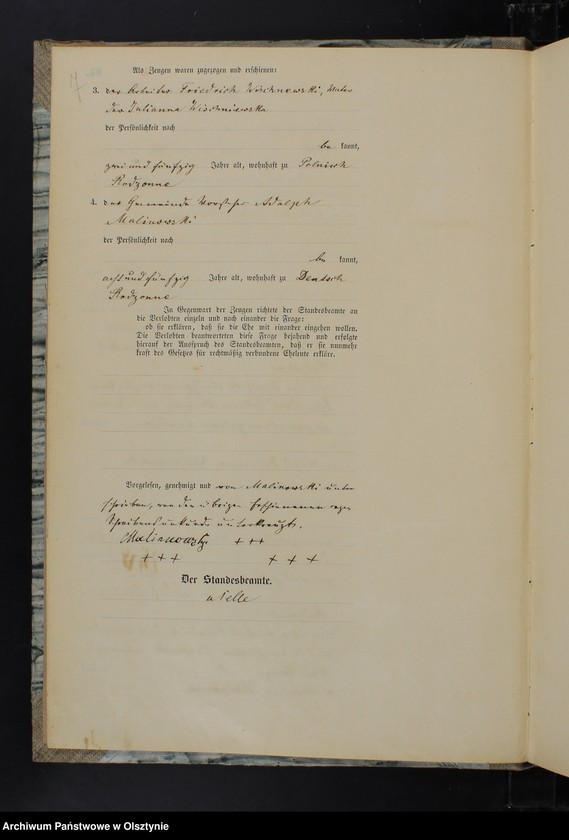 Als Zeugen waren zugezogen und erschienen:
3. der Arbeiter Friedrich Wischnewski, Vater
der Julianna Wischniewska
der Persönlichkeit nach
be kannt,
zwei und fünfzig Jahre alt, wohnhaft zu Polnisch
Rodzonne
4. der Gemeinde Vorsteher Adolph
Malinowski
der Persönlichkeit nach
be kannt,
acht und fünfzig Jahre alt, wohnhaft zu Deutsch
Rodzonne
In Gegenwart der Zeugen richtete der Standesbeamte an
die Verlobten einzeln und nach einander die Frage:
ob sie erklären, daß sie die Ehe mit einander eingehen wollen.
Die Verlobten beantworteten diese Frage bejahend und erfolgte
hierauf der Ausspruch des Standesbeamten, daß er sie nunmehr
kraft des Gesetzes für rechtmäßig verbundene Eheleute erkläre.
Vorgelesen, genehmigt und von Malinowski unter
schrieben, von den übrigen Erschienenen wegen
Schreibensunkunde unterkreuzt.
Malianowsky +++
+++ +++
Der Standesbeamte.
Archiwum Państwowe w Olsztynie